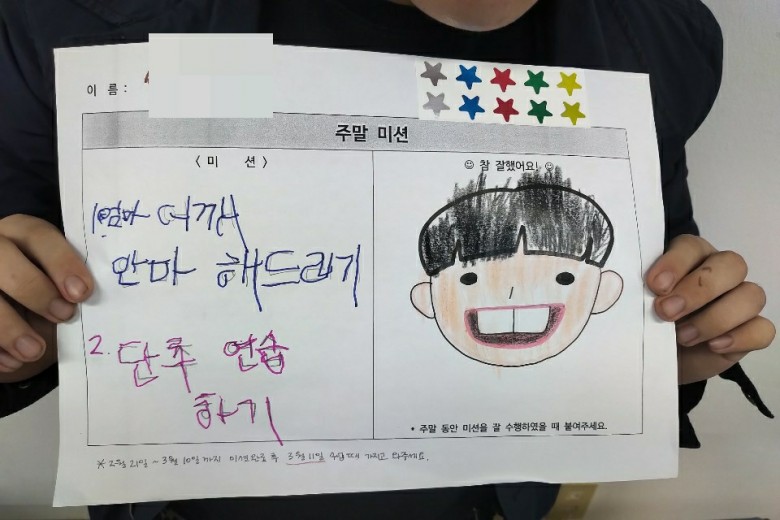 이 름 :
주말 미션
< 미 션 >
1. 엄마 어깨
안마 해드리기
2. 단추 연습
하기
☺ 참 잘했어요! ☺
• 주말 동안 미션을 잘 수행하였을 때 붙여주세요.
※ 2월 21일 ~ 3월 10일까지 미션완료 후 3월 11일 수업때 가지고 와주세요.